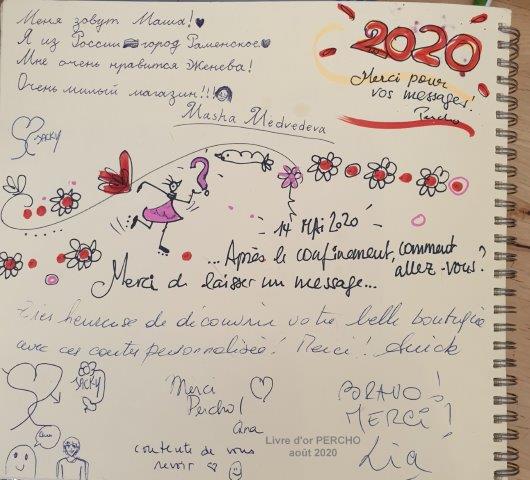 Меня зовут Маша!
Я из России город Раменское
Мне очень нравится Женева!
Очень милый магазин!!!
Masha Medvedeva
2020
Merci pour
vos messages!
Percho
JACKY
?
- 14 MAI 2020 -
...Après le confinement, comment
allez-vous?
Merci de laisser un message...
Très heureuse de découvrir votre belle boutique
avec ces contes personnalisés! Merci!
JACKY
Merci
Percho!
Ana
contente de vous
revoir
BRAVO!
MERCI!
Lia
Livre d'or PERCHO
août 2020